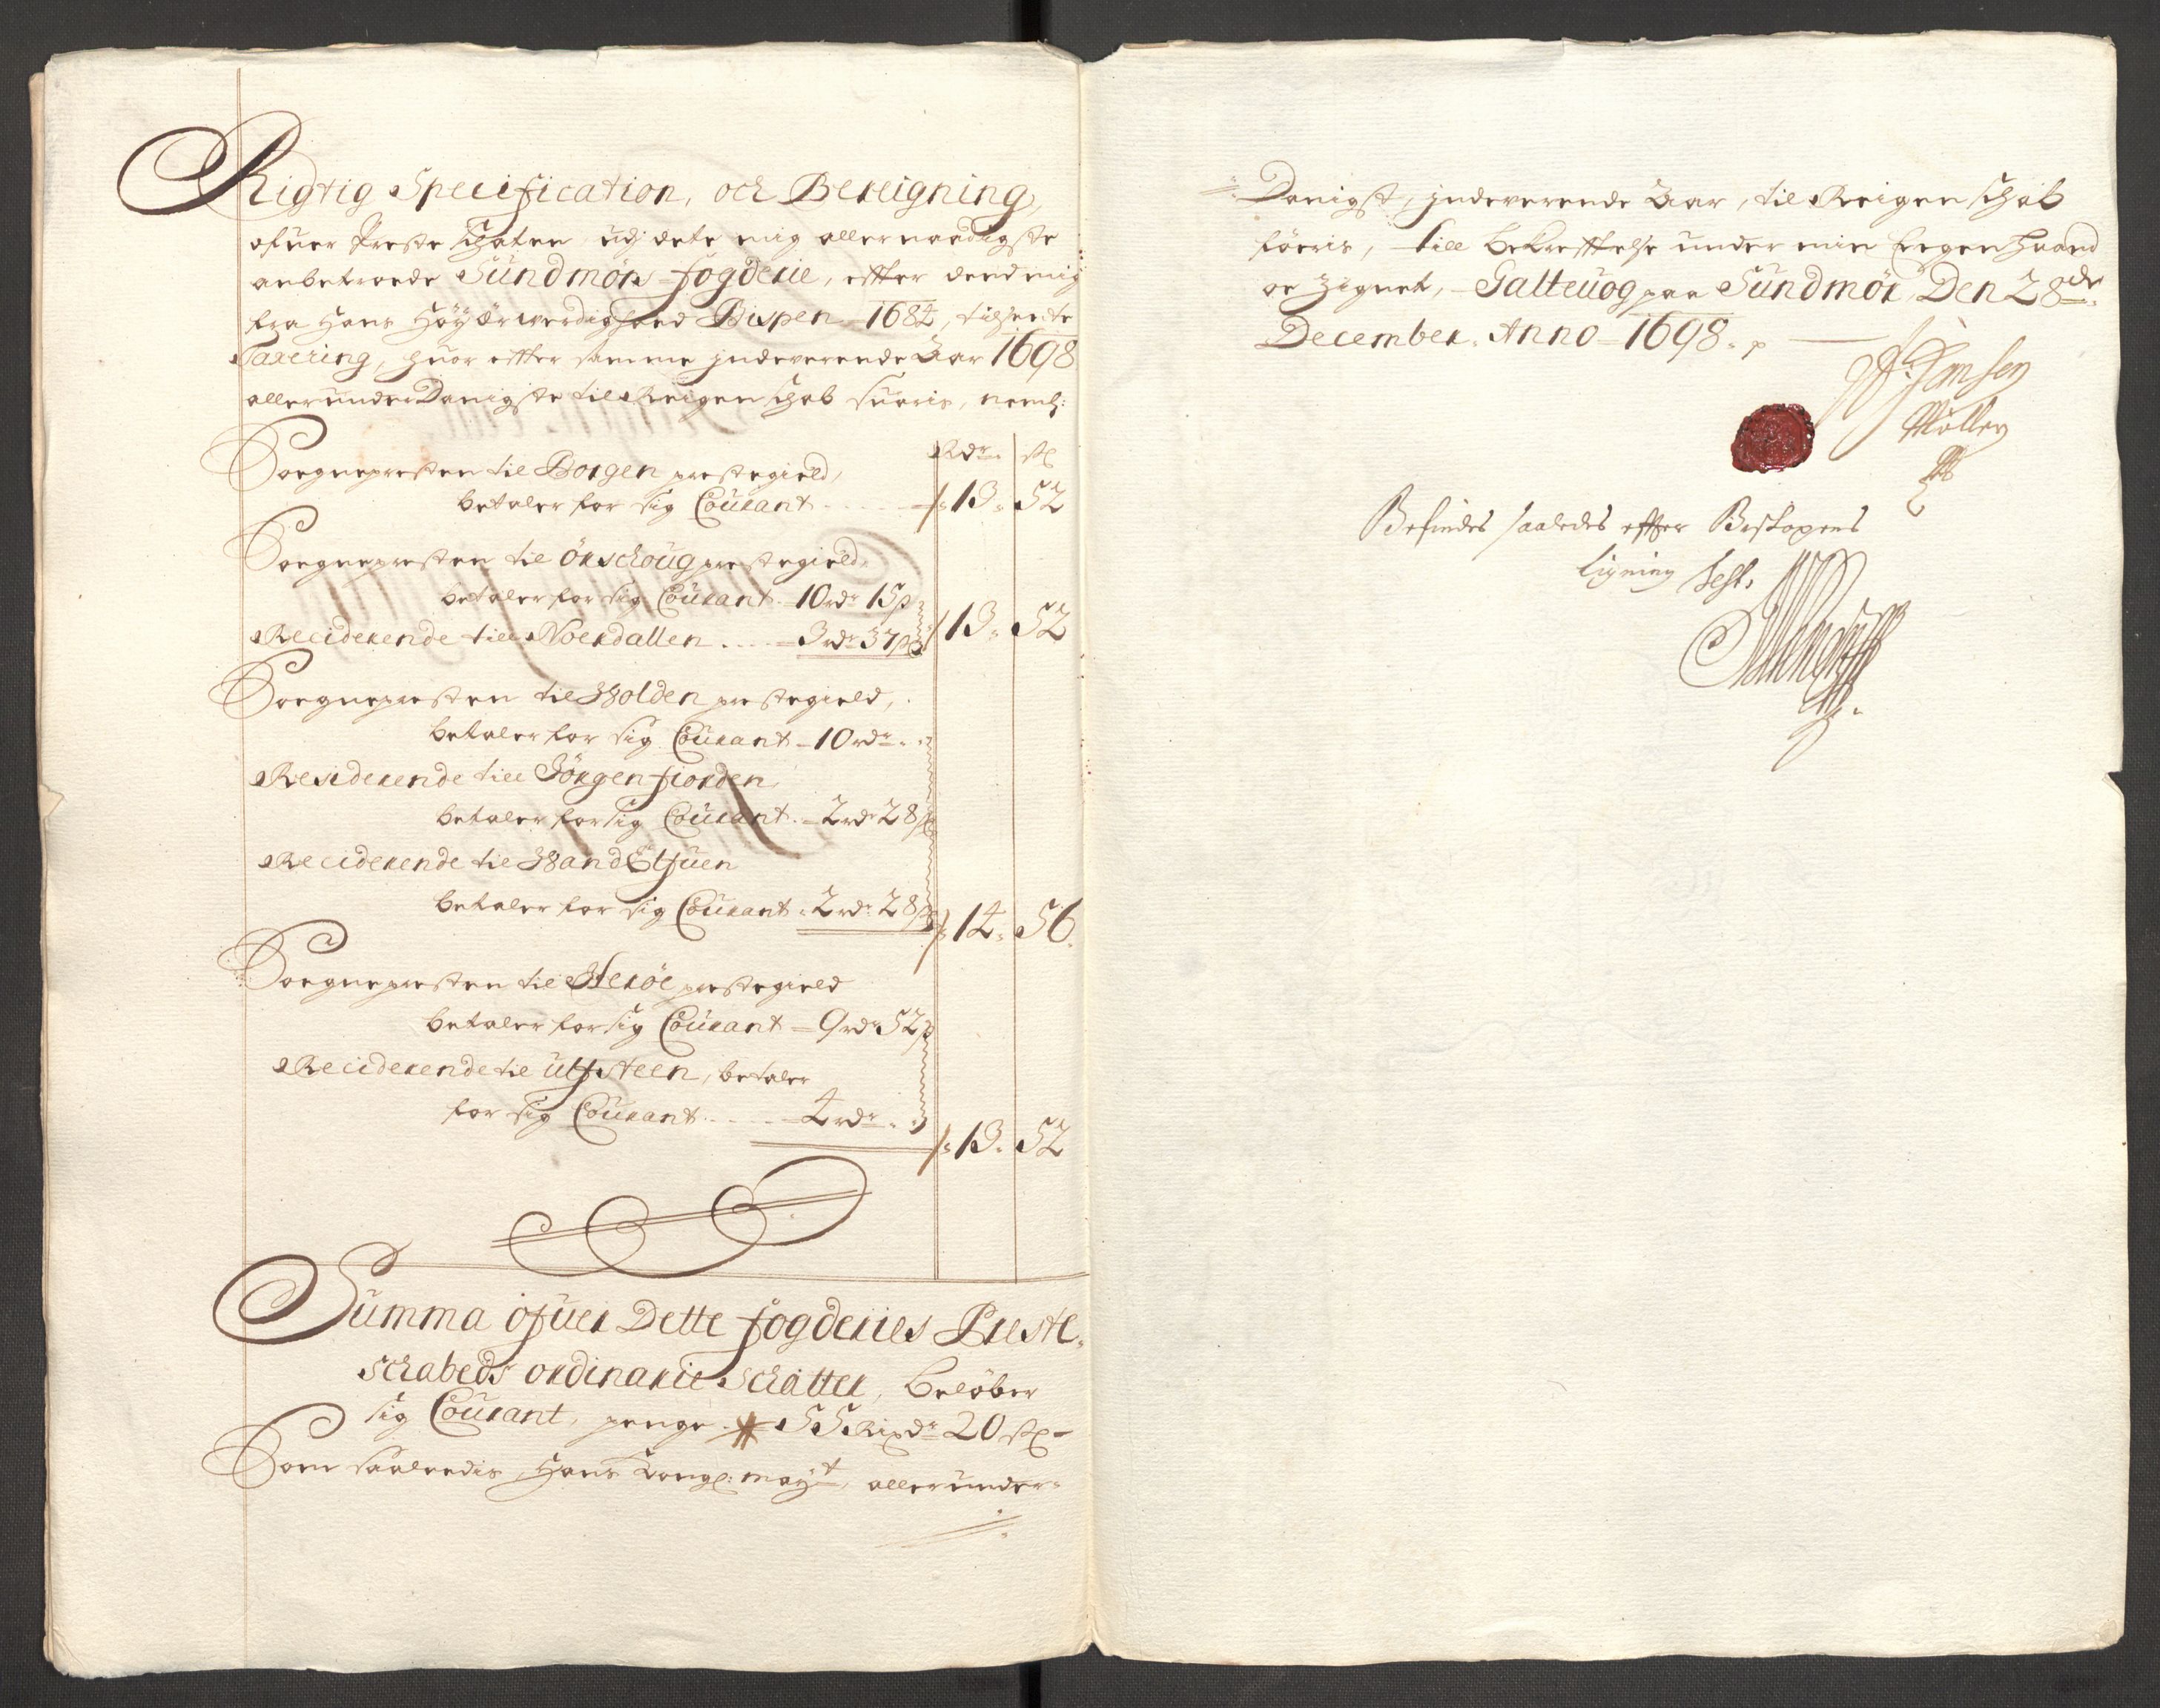 Rigtig Specification, och Bereigning,
ofuer Preste Schaten udj dete mig allernaadigste
anbetroede Sundmörs fögderie, effter dend mig
fra Hans Höyærwerdighed Bispen 1684, tilsente
Taxering, huor effter samme jndeverende Aar 1698
allerunderDanigste til Reigenschab suaris, neml:
Rdr. sk
Soegnepresten til Borgen prestegield,
betaler for sig Courant . . . . . 13. 52
Soegnepresten til Örschoug prestegield.
betaler for sig Courant. 10 rdr 15 s
Reciderende till Noerdallen . . . . 3 rdr 37 s 13. 52
Soegnepresten til Wolden prestegield,
betaler for sig Courant 10 rdr.
Residerende till Görgenfiorden
betaler for sig Courant. 2 rdr 28 s
Reciderende til WandElfuen
betaler for sig Courant. 2 rdr 28 s 14. 56.
Soegnepresten til Heröe prestegield
betaler for sig Courant 9 rdr 52 s
Reciderende til Ulfsteen, betaler
for sig Courant . . . . 4 rdr. 13. 52
Summa ofuer Dette fogderies Preste-
schabeds ordinarie Schatter, belöber
sig Courant, penge 55 Rixdr 20 sk
Som saaleedis Hans Kongl: mayt allerunder-
Danigst, jndeverende Aar, til Reigenschab
föeris, till bekrefftelse under min Eegen haand
oc Zignet, Galteuog paa Sundmör, Den 28de
December. Anno 1698.
Jensen
Möller
Befindes saaledes effter Biskopens
ligning